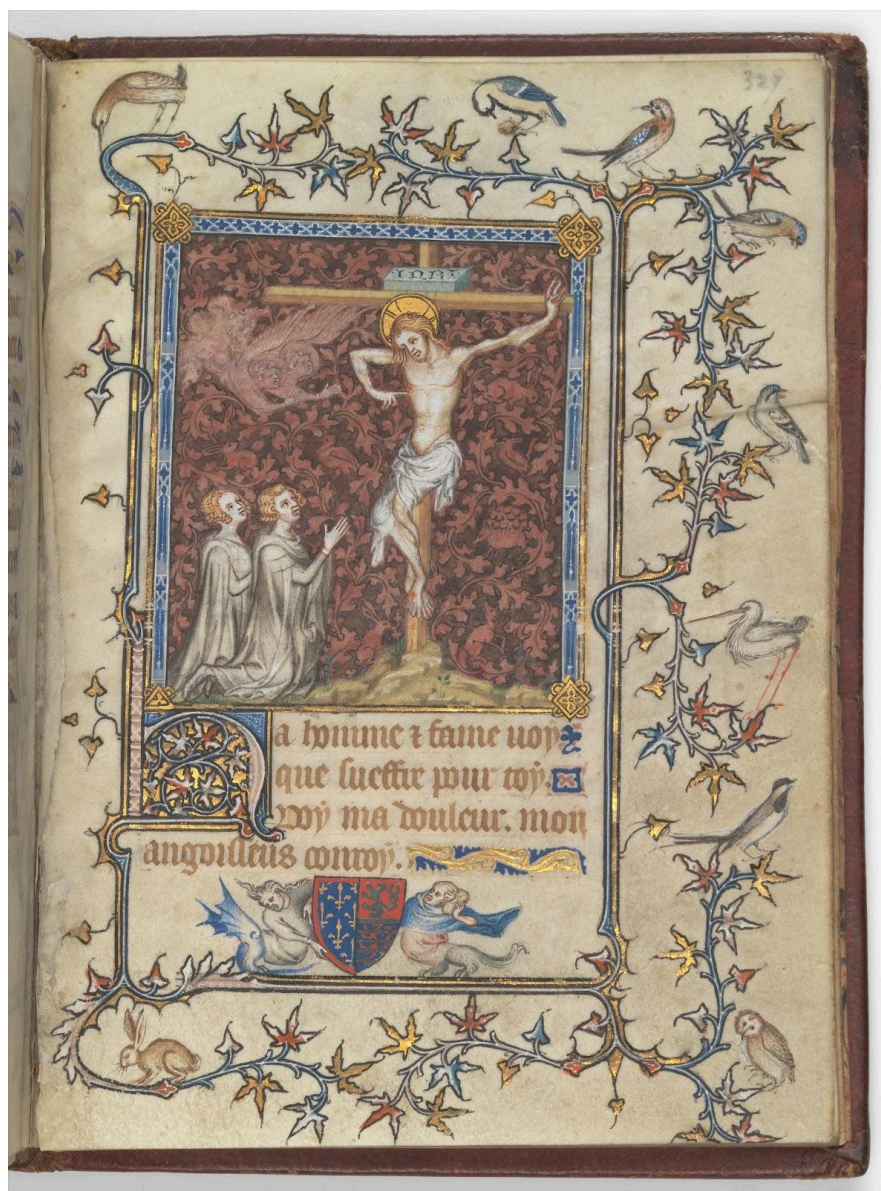 329
INRI
Ha homme & fame uoy
que sueffre pour toy.
voy ma douleur. mon
angoisseus conroy.